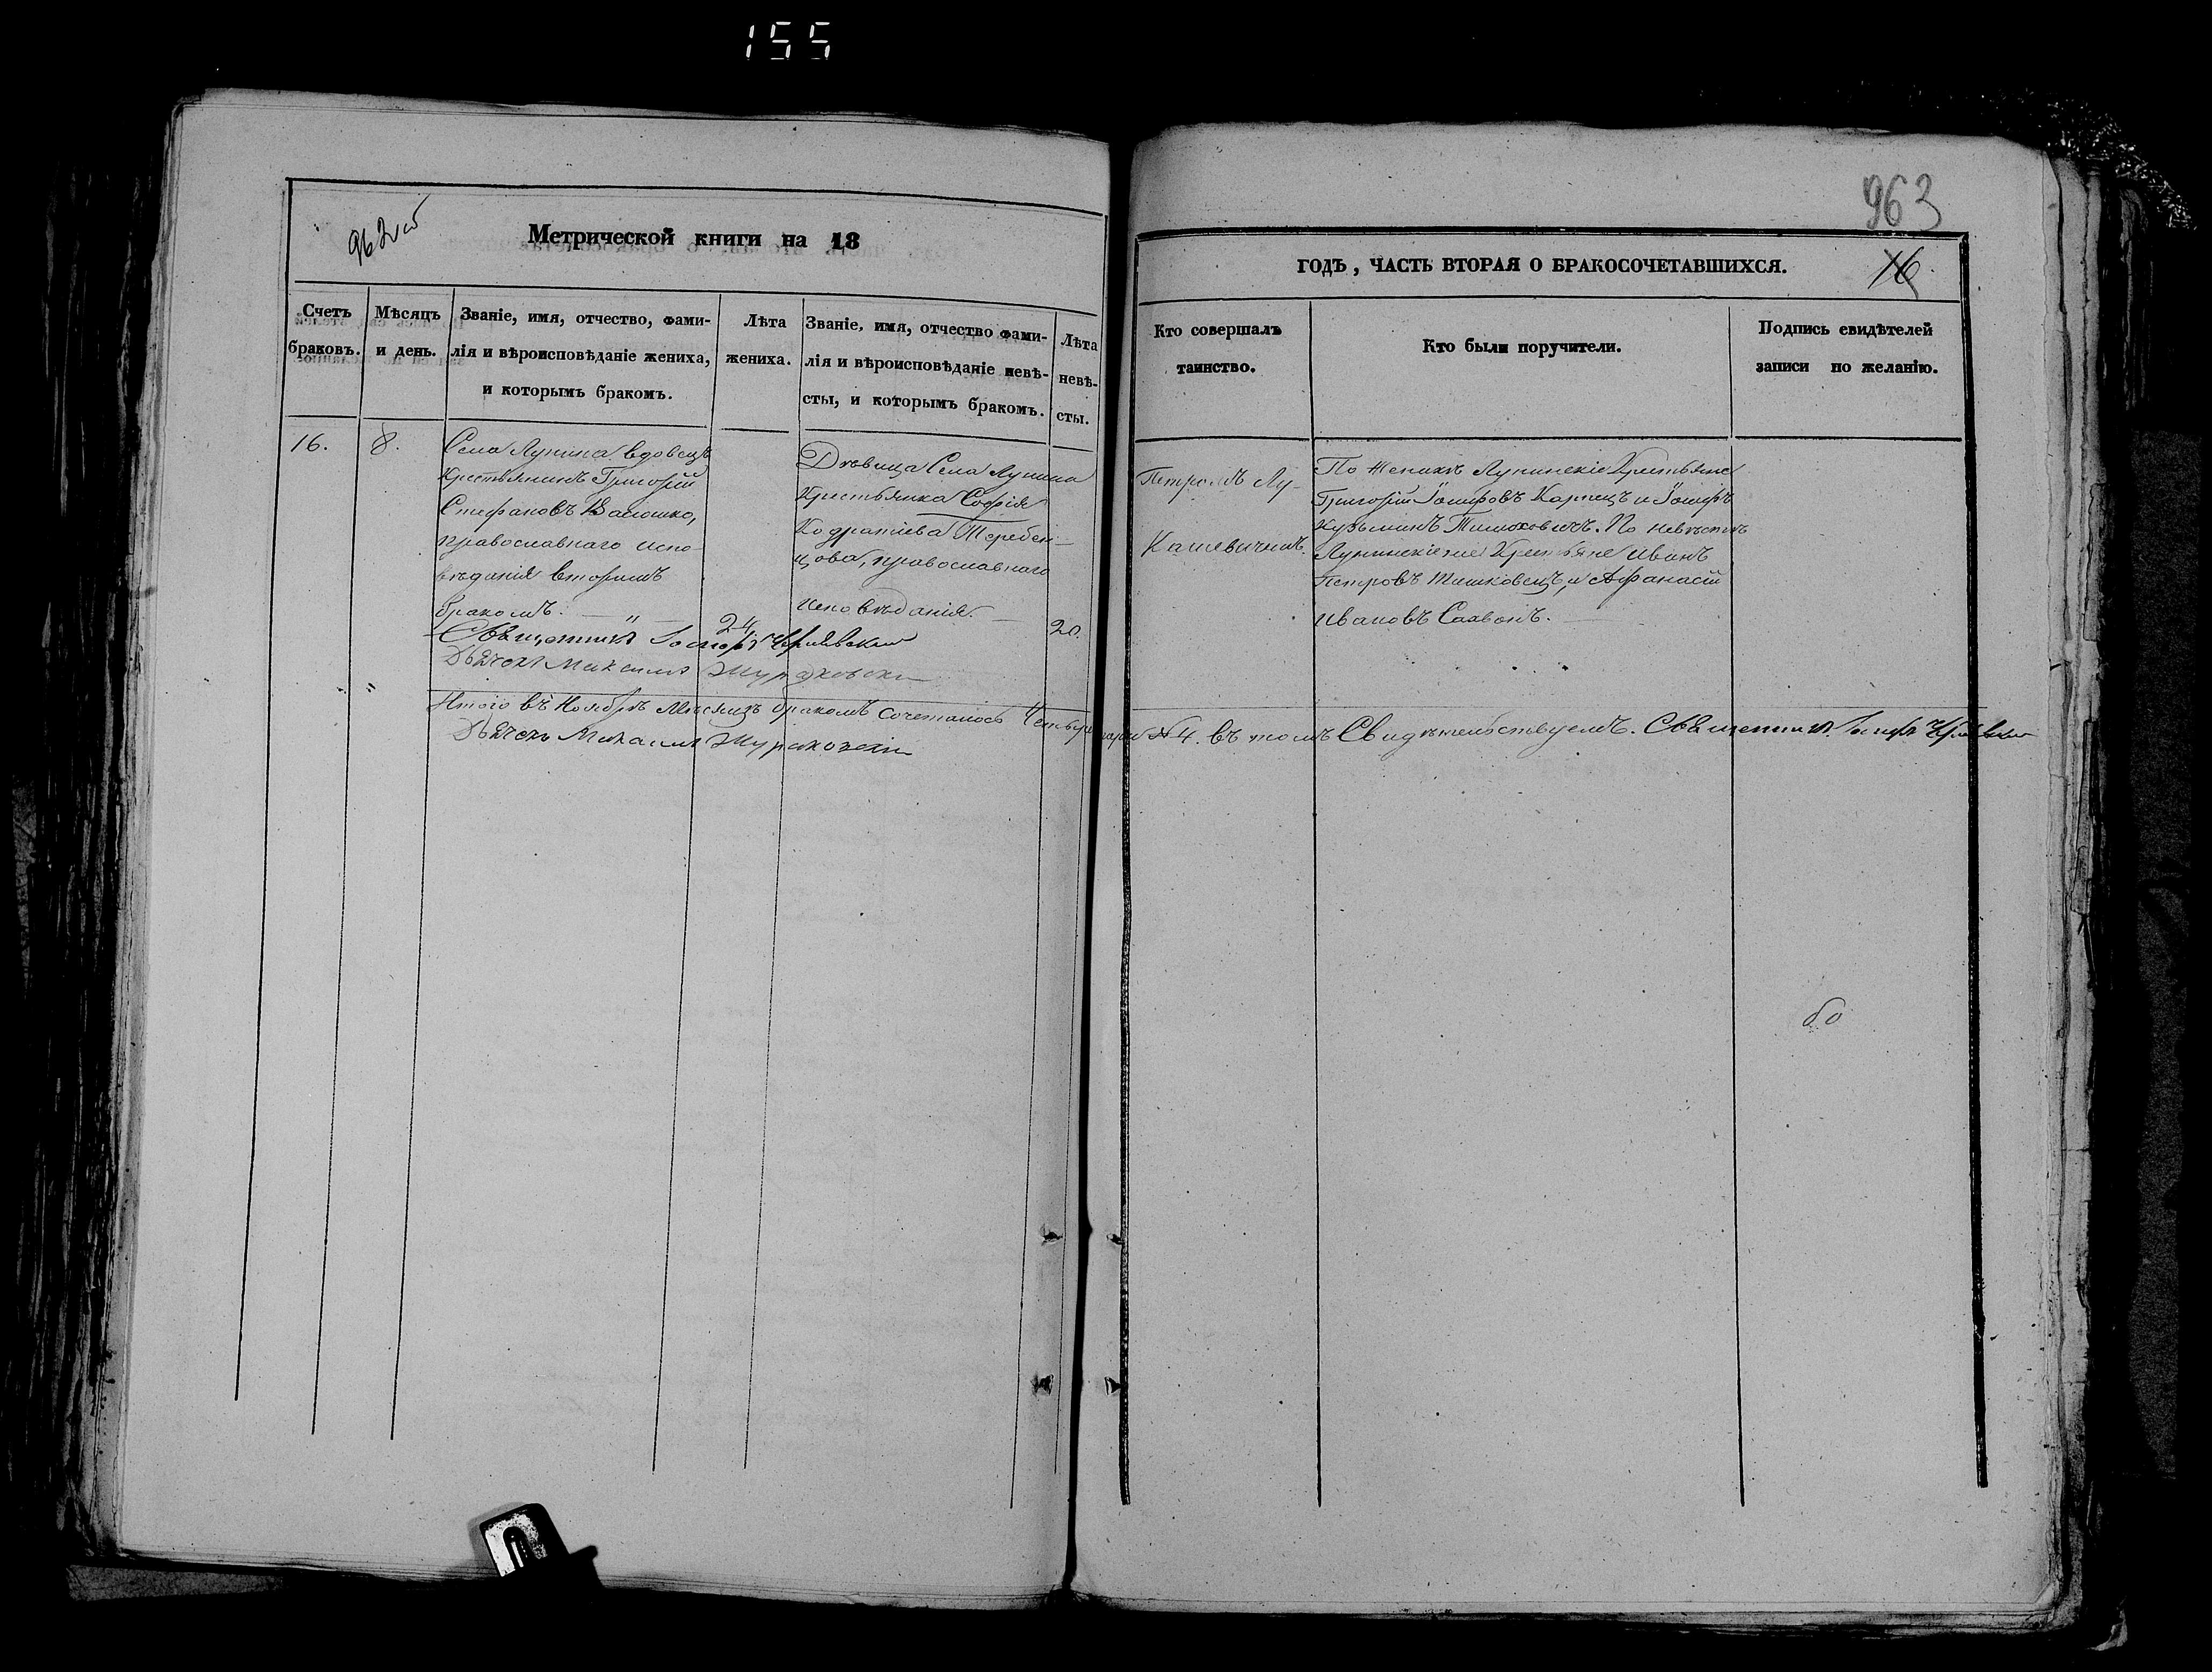 155
962 об
Метрической книги на 18
Счетъ браковъ.
Мѣсяцъ и день.
Званіе, имя, отчество, фами-
лія и вѣроисповѣданіе жениха,
и которымъ бракомъ.
Лѣта
жениха.
Званіе, имя, отчество фами-
лія и вѣроисповѣданіе невѣ-
сты, и которымъ бракомъ.
Лѣта
невѣ-
сты.
16.
8.
Села Лунина вдовецъ
Крестьянинъ Григорій
Стефановъ
православнаго испо-
вѣданія вторымъ
бракомъ.
24
Дѣвица Села Лунина
Крестьянка Софія
Кодратіева Теребен-
цова, православнаго
исповѣданія.
20.
Священникъ Іосифъ
Дьячекъ Михаилъ
Итого въ Ноябрѣ Мѣсяцѣ бракомъ сочеталось Четыре пары № 4. въ томъ Свидѣтельствуемъ. Священникъ Іосифъ
Дьячекъ Михаилъ
963
ГОДЪ, ЧАСТЬ ВТОРАЯ О БРАКОСОЧЕТАВШИХСЯ.
16
Кто совершалъ
таинство.
Кто были поручители.
Подпись свидѣтелей
записи по желанію.
Петромъ Лу-
кашевичемъ.
По Женихѣ Лунинскіе Крестьяне
Григорій Іосифовъ Карпецъ и Іосифъ
Кузьминъ Тимоховичъ. По невѣстѣ
Лунинскіе же Крестьяне Иванъ
Петровъ Тишковецъ, и Афанасій
Ивановъ